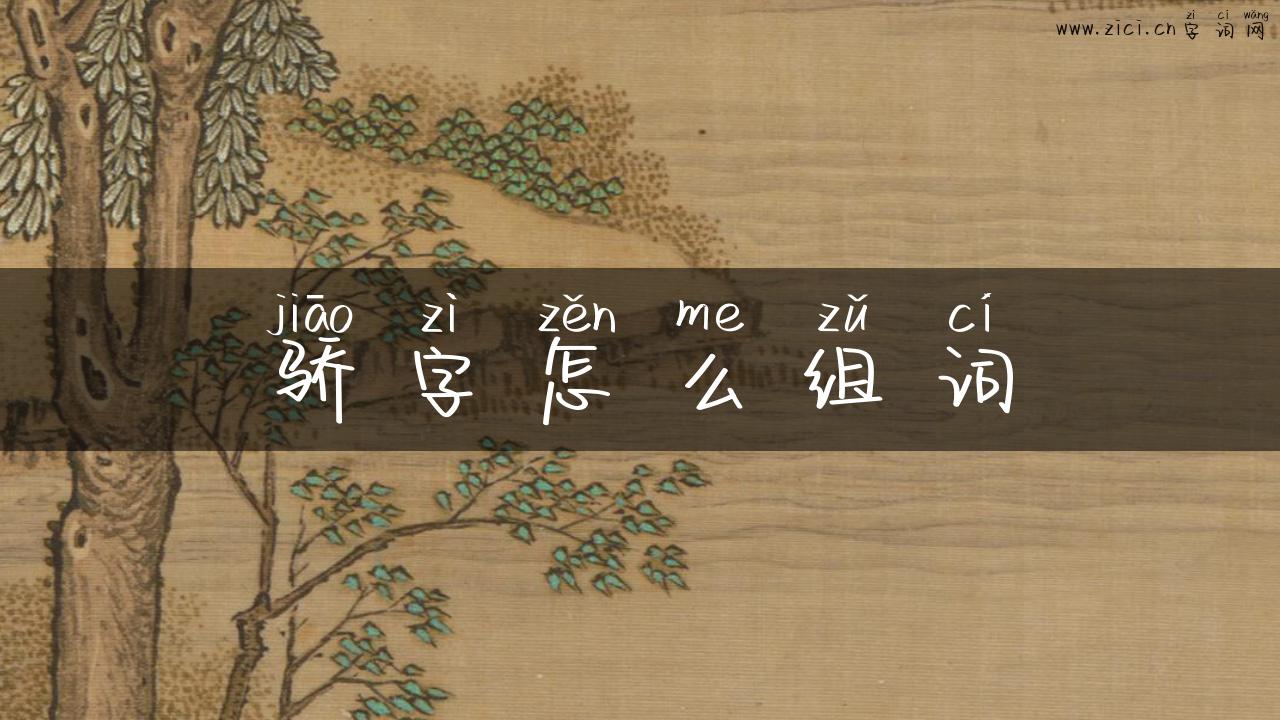 zì cí wǎng
www.zici.cn字词网
jiāo zì zěn me zǔ cí
骄字怎么组词